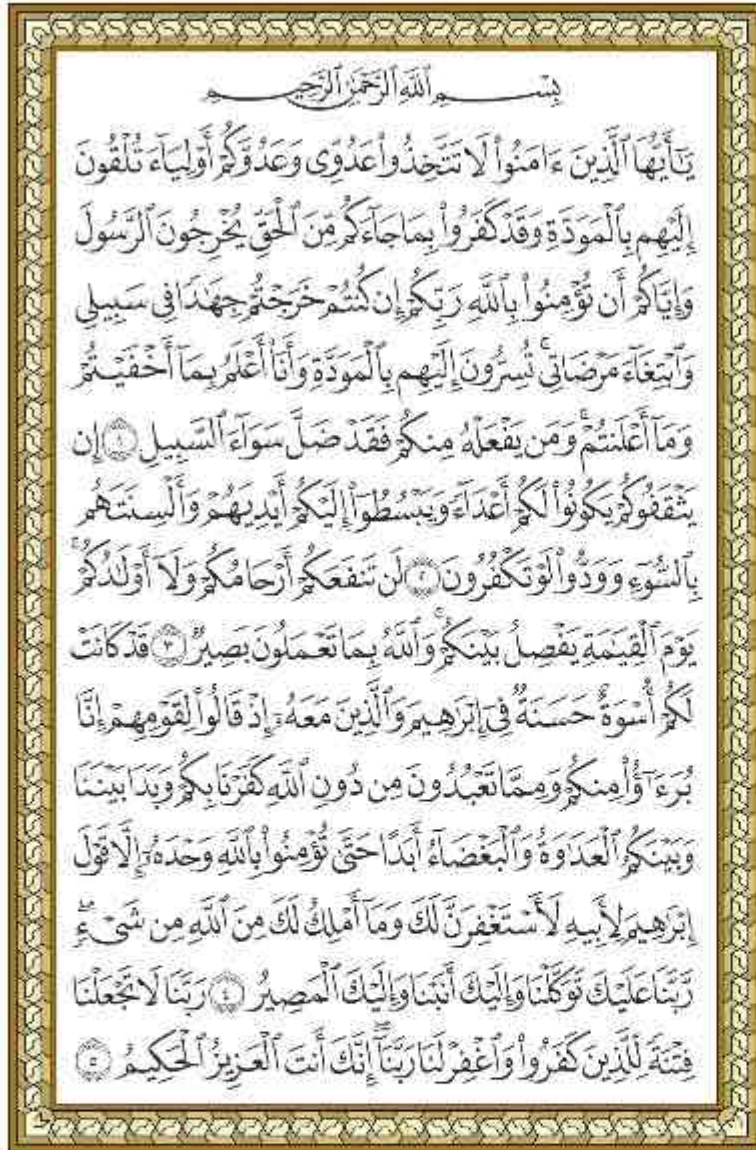 بِسْمِ ٱللَّهِ ٱلرَّحْمَٰنِ ٱلرَّحِيمِ
يَٰٓأَيُّهَا ٱلَّذِينَ ءَامَنُوا۟ لَا تَتَّخِذُوا۟ عَدُوِّى وَعَدُوَّكُمْ أَوْلِيَآءَ تُلْقُونَ
إِلَيْهِم بِٱلْمَوَدَّةِ وَقَدْ كَفَرُوا۟ بِمَا جَآءَكُم مِّنَ ٱلْحَقِّ يُخْرِجُونَ ٱلرَّسُولَ
وَإِيَّاكُمْ أَن تُؤْمِنُوا۟ بِٱللَّهِ رَبِّكُمْ إِن كُنتُمْ خَرَجْتُمْ جِهَٰدًا فِى سَبِيلِى
وَٱبْتِغَآءَ مَرْضَاتِى ۚ تُسِرُّونَ إِلَيْهِم بِٱلْمَوَدَّةِ وَأَنَا۠ أَعْلَمُ بِمَآ أَخْفَيْتُمْ
وَمَآ أَعْلَنتُمْ ۚ وَمَن يَفْعَلْهُ مِنكُمْ فَقَدْ ضَلَّ سَوَآءَ ٱلسَّبِيلِ ١ إِن
يَثْقَفُوكُمْ يَكُونُوا۟ لَكُمْ أَعْدَآءً وَيَبْسُطُوٓا۟ إِلَيْكُمْ أَيْدِيَهُمْ وَأَلْسِنَتَهُم
بِٱلسُّوٓءِ وَوَدُّوا۟ لَوْ تَكْفُرُونَ ٢ لَن تَنفَعَكُمْ أَرْحَامُكُمْ وَلَآ أَوْلَٰدُكُمْ ۚ
يَوْمَ ٱلْقِيَٰمَةِ يَفْصِلُ بَيْنَكُمْ ۚ وَٱللَّهُ بِمَا تَعْمَلُونَ بَصِيرٌ ٣ قَدْ كَانَتْ
لَكُمْ أُسْوَةٌ حَسَنَةٌ فِىٓ إِبْرَٰهِيمَ وَٱلَّذِينَ مَعَهُۥٓ إِذْ قَالُوا۟ لِقَوْمِهِمْ إِنَّا
بُرَءَٰٓؤُا۟ مِنكُمْ وَمِمَّا تَعْبُدُونَ مِن دُونِ ٱللَّهِ كَفَرْنَا بِكُمْ وَبَدَا بَيْنَنَا
وَبَيْنَكُمُ ٱلْعَدَٰوَةُ وَٱلْبَغْضَآءُ أَبَدًا حَتَّىٰ تُؤْمِنُوا۟ بِٱللَّهِ وَحْدَهُۥٓ إِلَّا قَوْلَ
إِبْرَٰهِيمَ لِأَبِيهِ لَأَسْتَغْفِرَنَّ لَكَ وَمَآ أَمْلِكُ لَكَ مِنَ ٱللَّهِ مِن شَىْءٍ ۖ
رَّبَّنَا عَلَيْكَ تَوَكَّلْنَا وَإِلَيْكَ أَنَبْنَا وَإِلَيْكَ ٱلْمَصِيرُ ٤ رَبَّنَا لَا تَجْعَلْنَا
فِتْنَةً لِّلَّذِينَ كَفَرُوا۟ وَٱغْفِرْ لَنَا رَبَّنَآ ۖ إِنَّكَ أَنتَ ٱلْعَزِيزُ ٱلْحَكِيمُ ٥